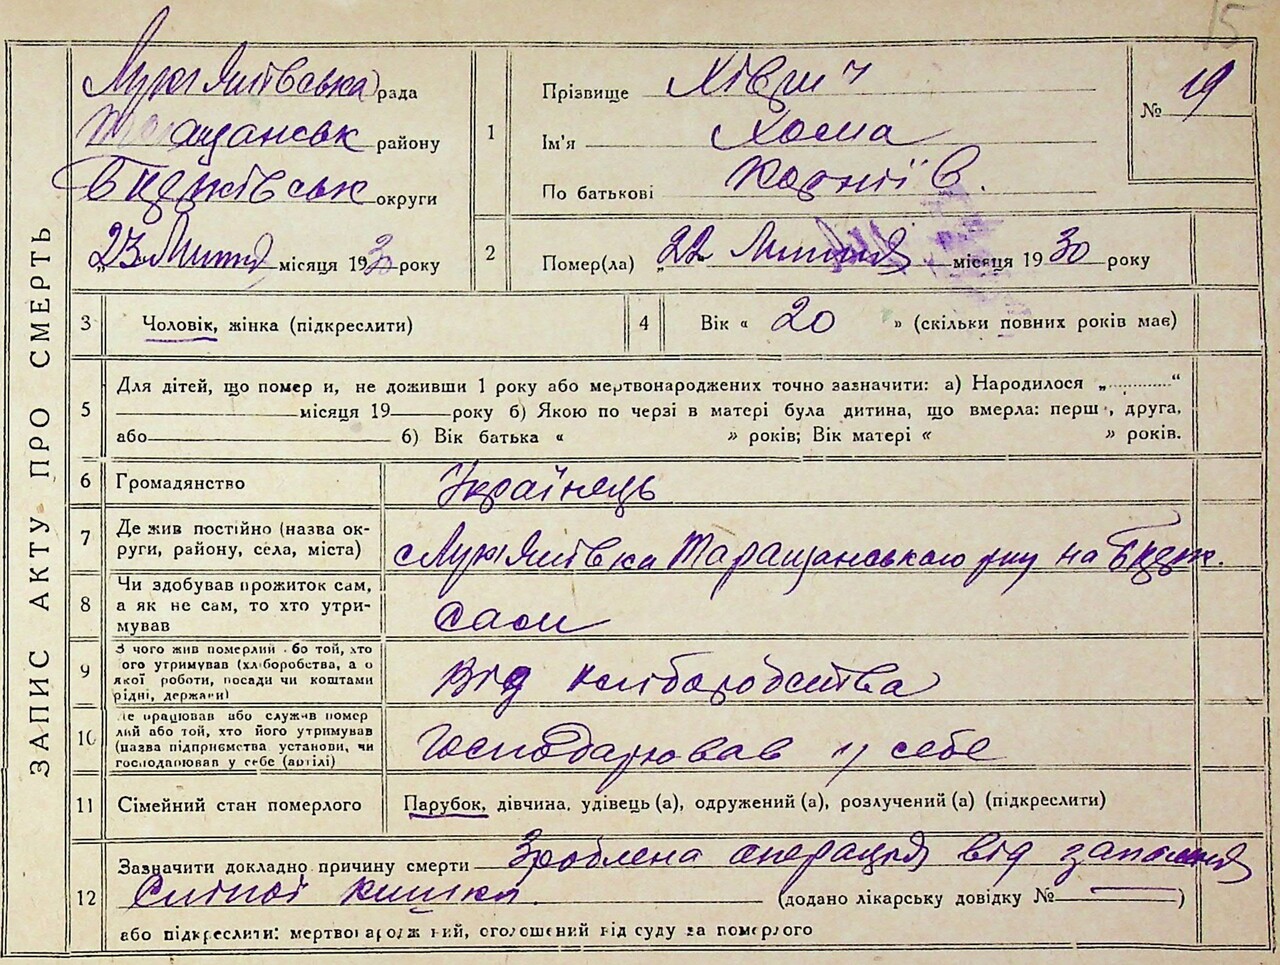 15
ЗАПИС АКТУ ПРО СМЕРТЬ
Лук'янівська рада
Таращанськ району
Бцерківськ округи
„23 Лютня місяця 1930 року
1
Прізвище
Ім'я Хома
По батькові Корніїв.
№ 19
2
Помер(ла) „22 Лютня місяця 1930 року
3 Чоловік, жінка (підкреслити)
4 Вік « 20 » (скільки повних років має)
5
Для дітей, що помер и, не доживши 1 року або мертвонароджених точно зазначити: а) Народилося „............“
місяця 19 року б) Якою по черзі в матері була дитина, що вмерла: перш , друга,
або б) Вік батька « » років; Вік матері « » років.
6 Громадянство Українець
7
Де жив постійно (назва ок-
руги, району, села, міста) с Лук'янівка Таращанського рну на Бцерк.
8
Чи здобував прожиток сам,
а як не сам, то хто утри-
мував
Сам
9
З чого жив померлий бо той, хто
ого утримував (хліборобства, а о
якої роботи, посади чи коштами
рідні, держави)
Від хліборобства
10
е працював або служив помер
лий або той, хто його утримував
(назва підприємства установи, чи
господарював у себе (артілі)
Господарював у себе
11 Сімейний стан померлого Парубок, дівчина, удівець (а), одружений (а), розлучений (а) (підкреслити)
12
Зазначити докладно причину смерти Зроблена операція від запалення
Сліпої кишки. (додано лікарську довідку № — )
або підкреслити: мертвонароджений, оголошений від суду за померлого